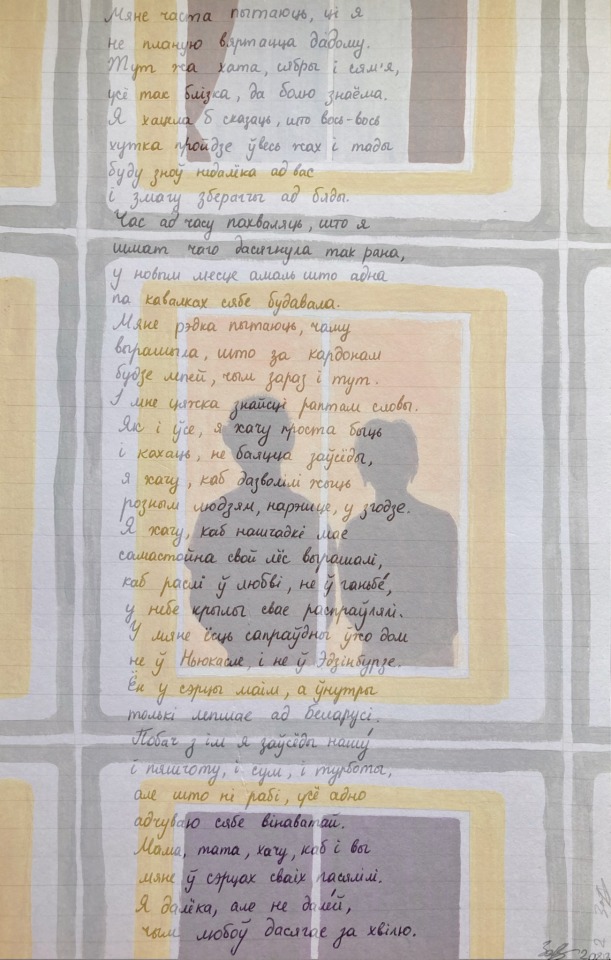 Мяне часта пытаюць, ці я
не планую вяртацца дадому.
Тут жа хата, сябры і сям'я,
усё так блізка, да болю знаёма.
Я хацела б сказаць, што вось-вось
хутка пройдзе ўвесь жах і тады
буду зноў нідалёка ад вас
і змагу зберагчы ад бяды.
Час ад часу пахваляць, што я
шмат чаго дасягнула так рана,
у новым месце амаль што адна
па кавалках сябе будавала.
Мяне рэдка пытаюць, чаму
вырашыла, што за кардонам
будзе лепей, чым зараз і тут.
І мне цяжка знайсці раптам словы.
Як і ўсе, я хачу проста быць
і кахаць, не баяцца заўсёды,
я хачу, каб дазволілі жыць
розным людзям, нарэшце, у згодзе.
Я хачу, каб нашчадкі мае
самастойна свой лёс вырашалі,
каб раслі ў любві, не ў ганьбе́,
у небе крылы свае распраўлялі.
У мяне ёсць сапраўдны ўжо дом
не ў Ньюкасле, і не ў Эдзінбурзе.
Ён у сэрцы маім, а ўнутры
толькі лепшае ад Беларусі.
Побач з ім я заўсёды нашу́
і пяшчоту, і сум, і турботы,
але што ні рабі, усё адно
адчуваю сябе вінаватай.
Мама, тата, хачу, каб і вы
мяне ў сэрцах сваіх пасялілі.
Я далёка, але не дале́й,
чым любоў дасягае за хвілю.